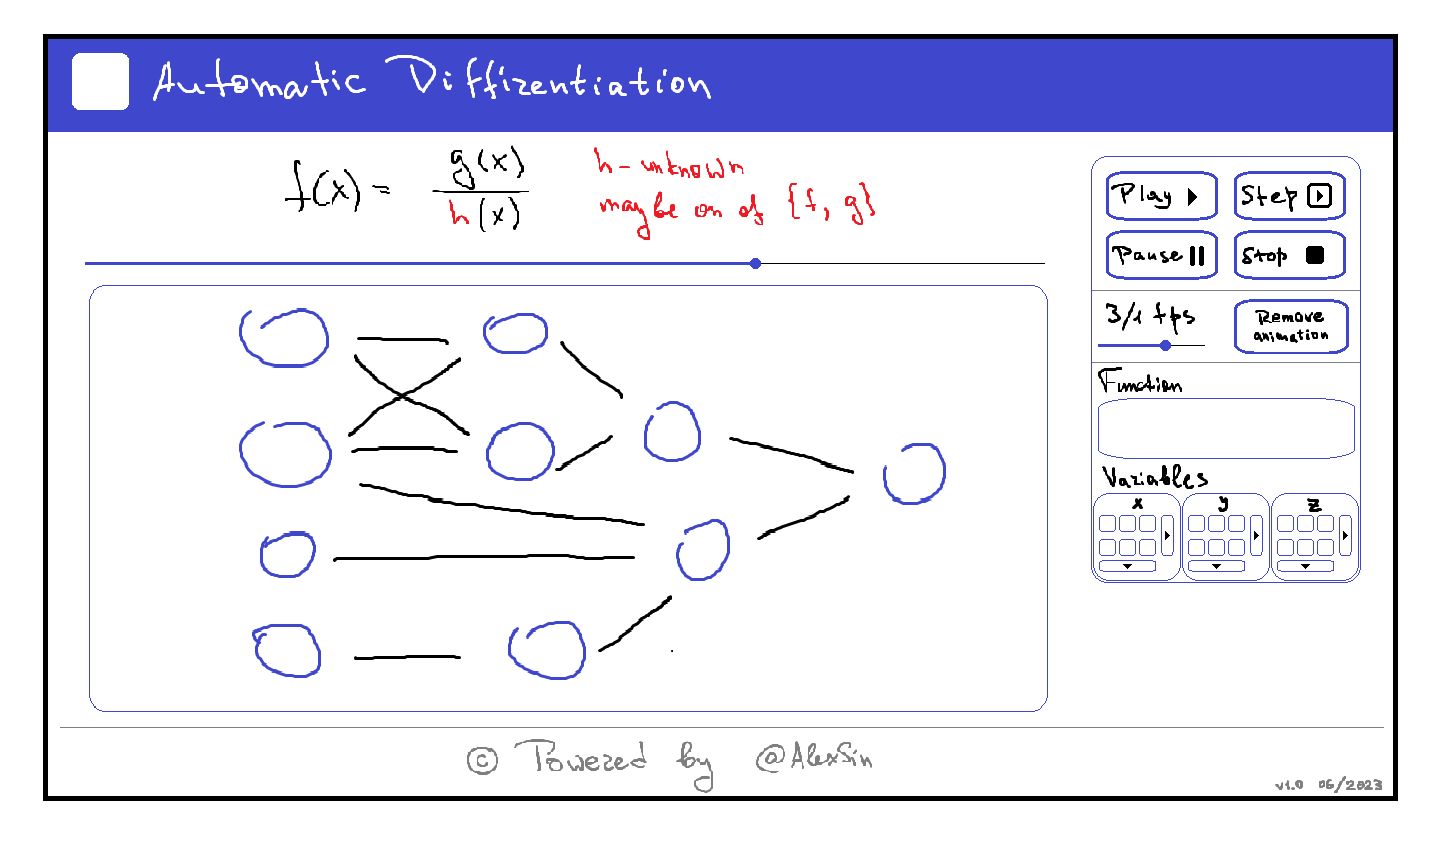 Automatic Diffirentiation
f(x) = g(x) / h(x)
h - unknown
maybe on of {f, g}
Play
Step
Pause
Stop
3/1 fps
Remove
animation
Function
Variables
x
y
z
© Powered by @AlexSin
v1.0 06/2023